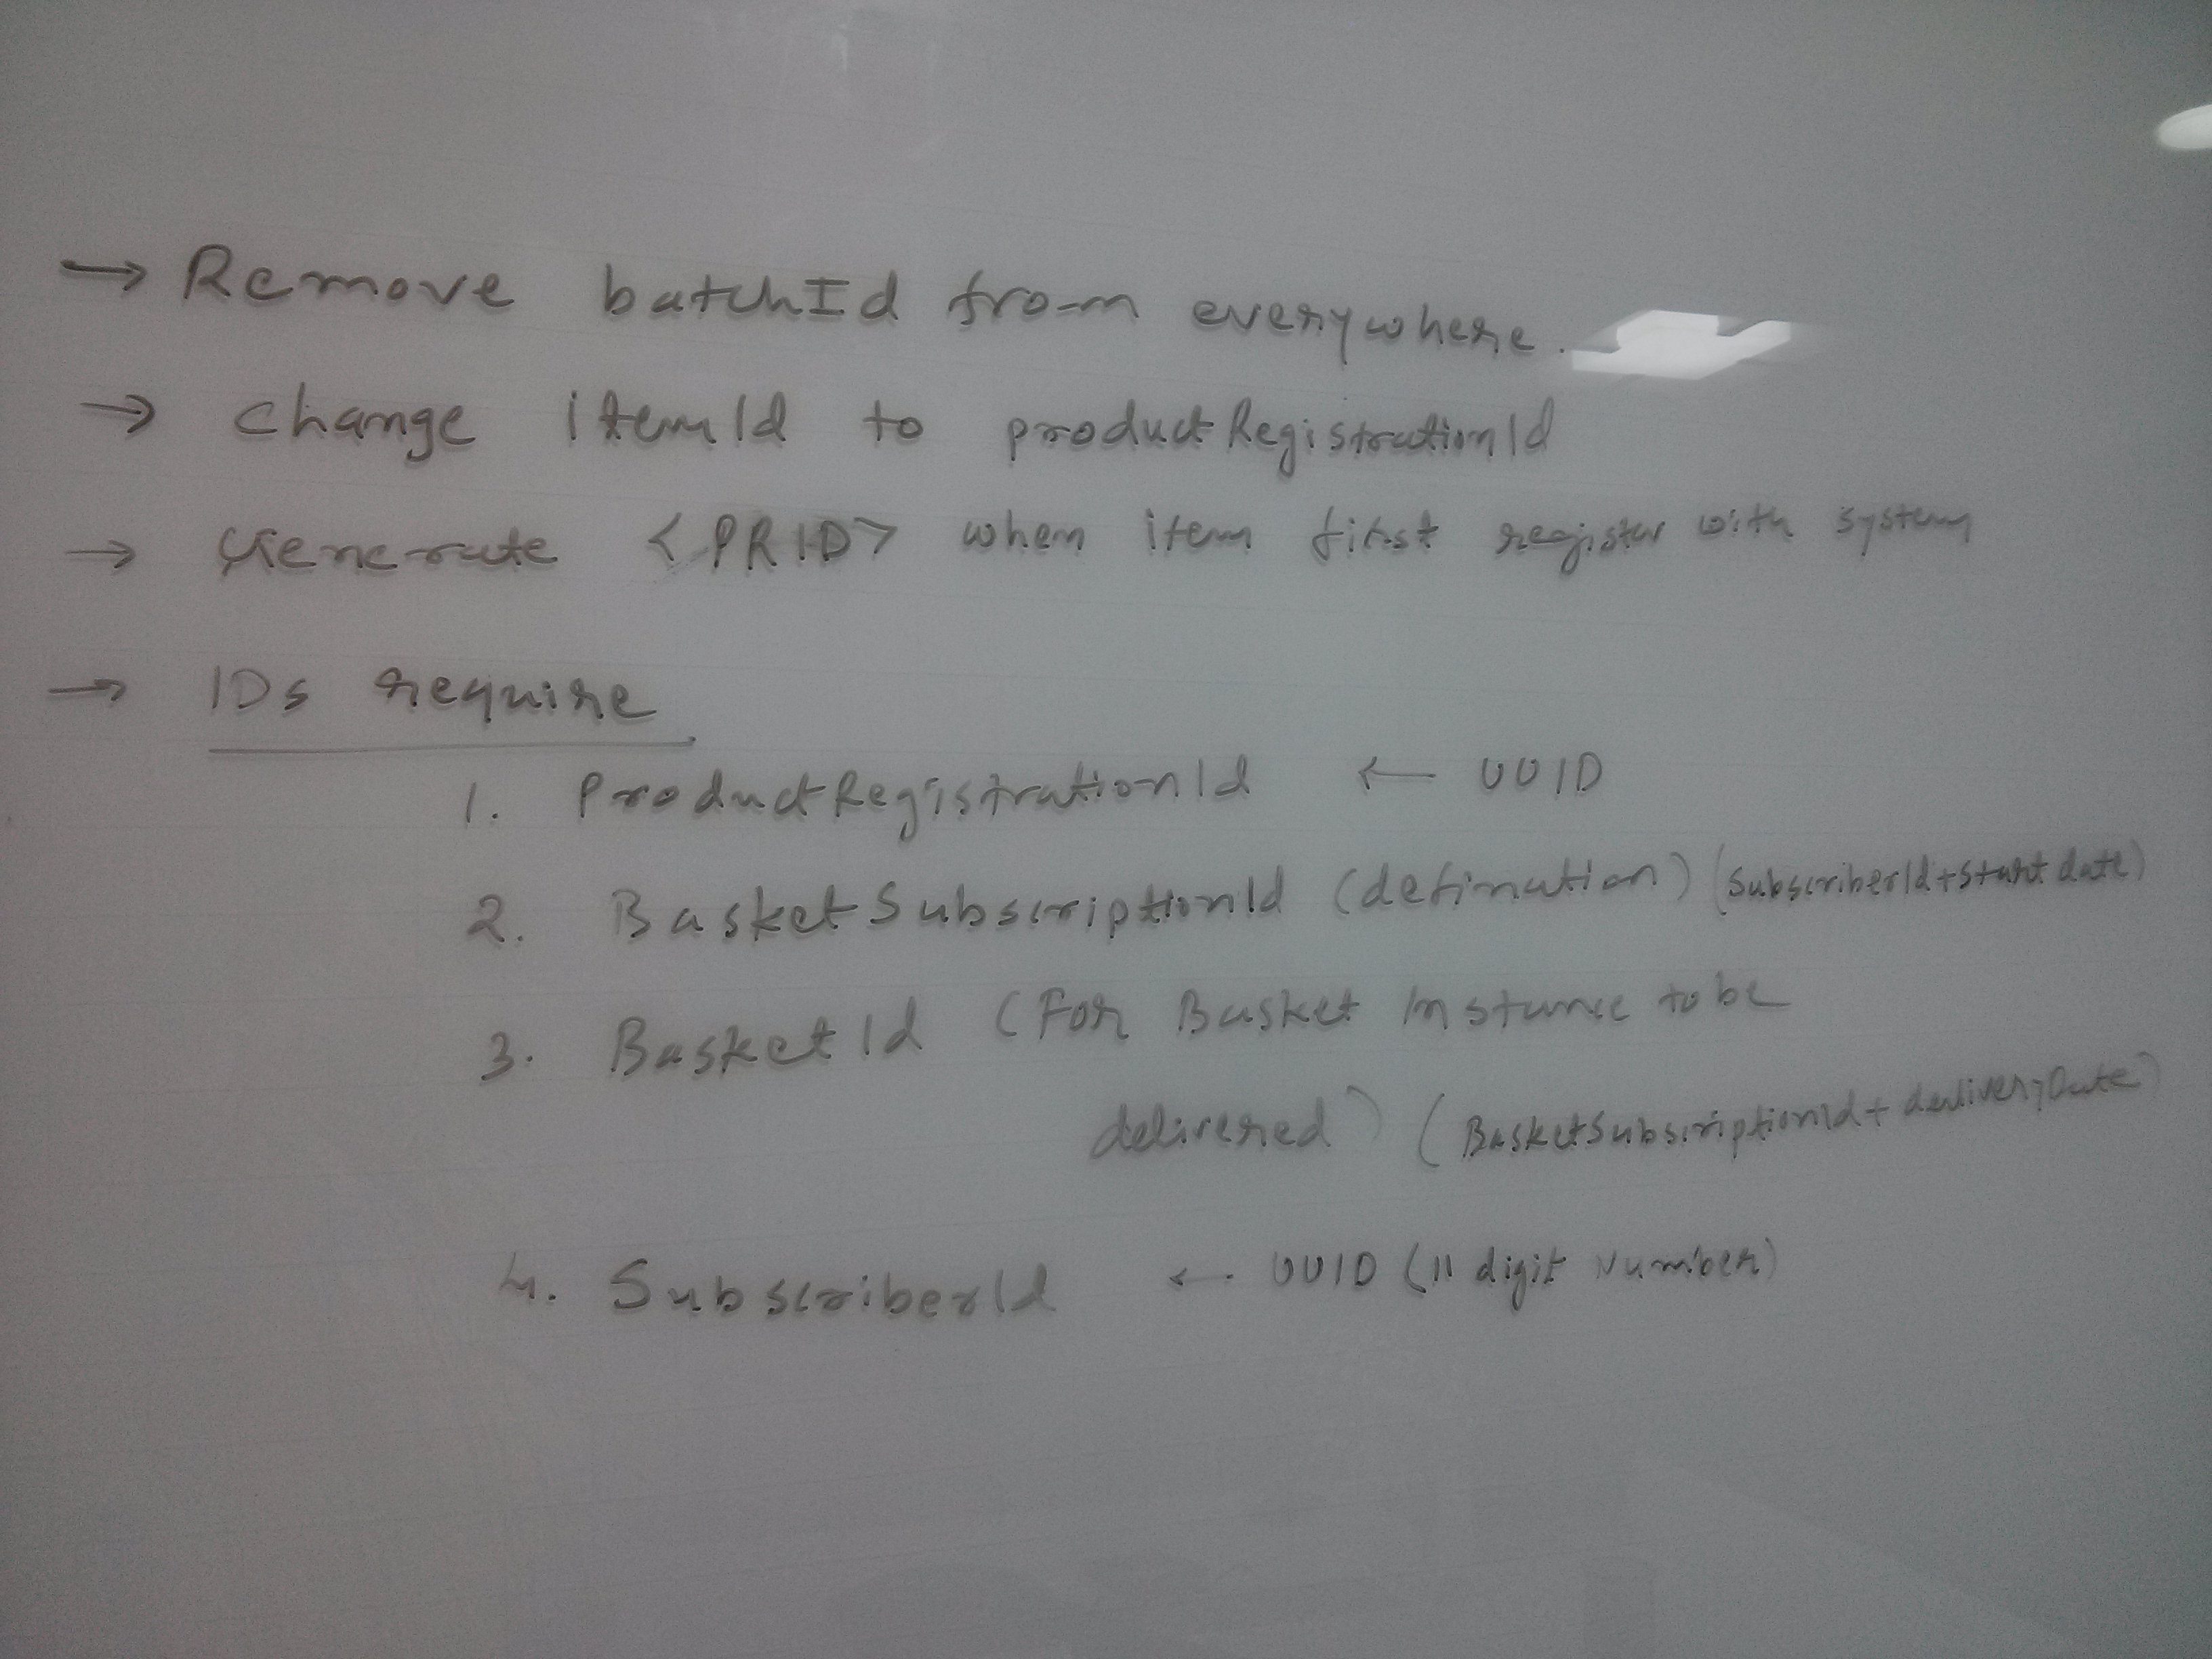 → Remove batchId from everywhere.
→ change itemId to productRegistrationId
→ Generate <PRID> when item first register with system
→ IDs require
1. ProductRegistrationId ← UUID
2. BasketSubscriptionId (defination) (SubscriberId+start date)
3. BasketId (For Basket Instance to be
delivered) (BasketSubscriptionId+deliveryDate)
4. SubscriberId ← UUID (11 digit Number)